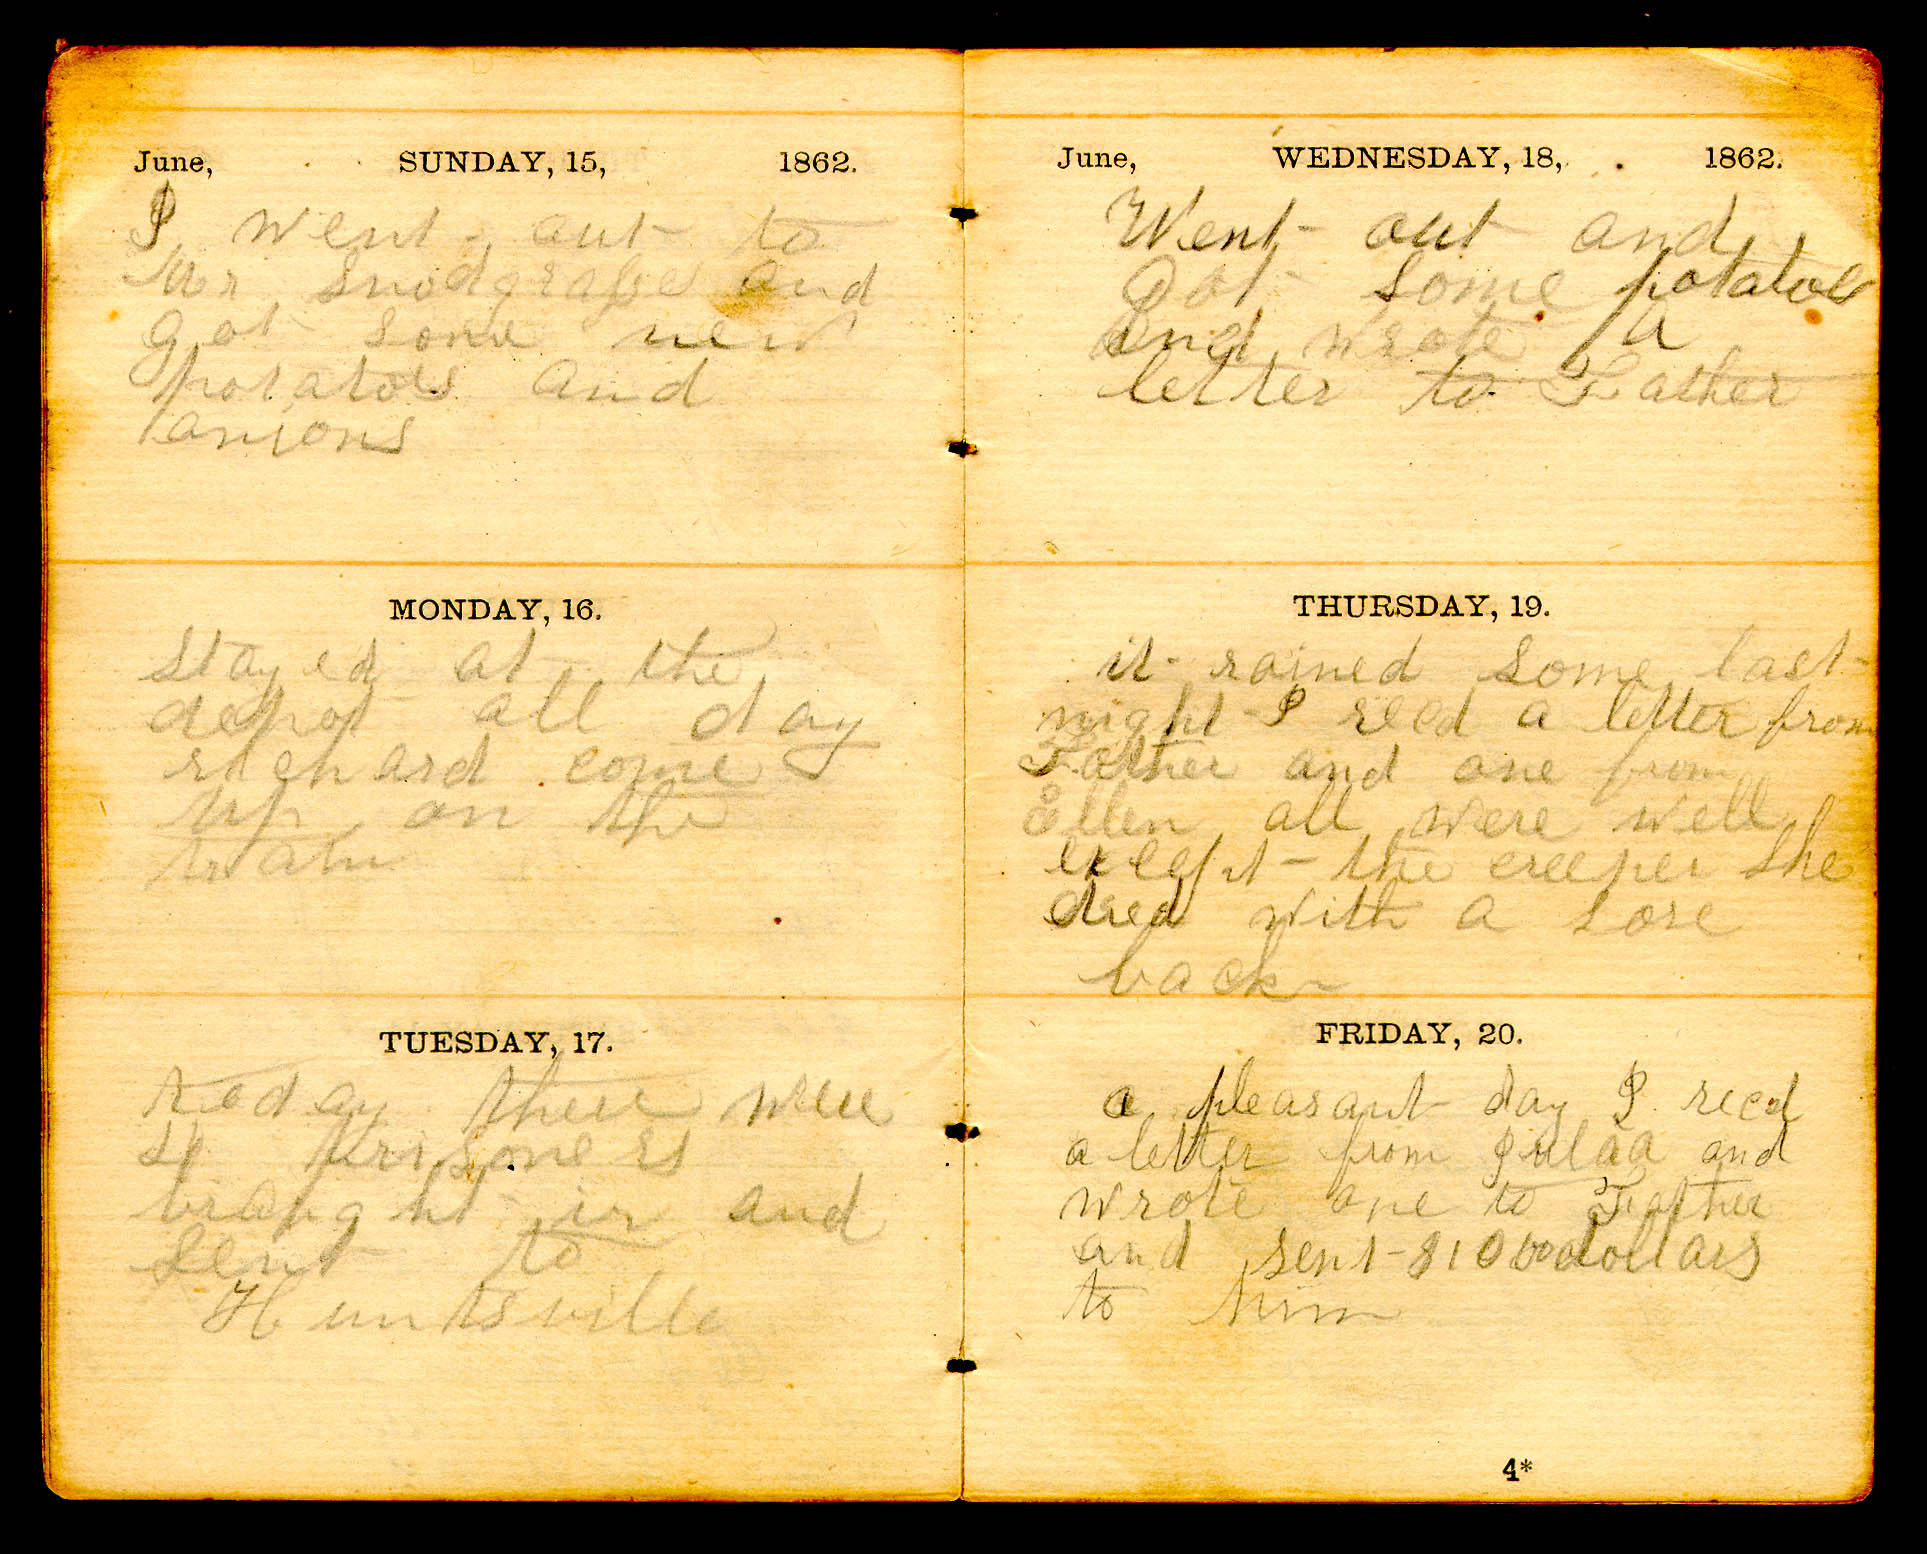 June, SUNDAY, 15, 1862.
I went out to
Mr Snodgrass and
got some new
potatoes and
onions
MONDAY, 16.
stayed at the
depot all day
richard come
up on the
train
TUESDAY, 17.
today there were
prisoners
braught in and
sent to
Huntsville
June, WEDNESDAY, 18, 1862.
Went out and
Got some potatoes
and wrote a
letter to Father
THURSDAY, 19.
it rained some last
night I recd a letter from
Father and one from
Ellen all were well
except the creeper she
died with a sore
back
FRIDAY, 20.
a pleasant day I recd
a letter from and
wrote one to Father
and sent dollars
to him
4*